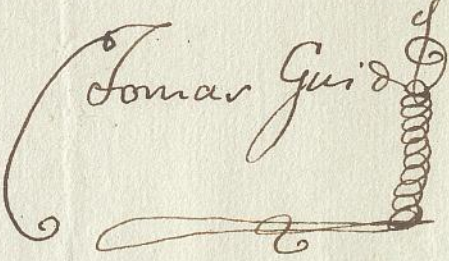 Tomas Guido